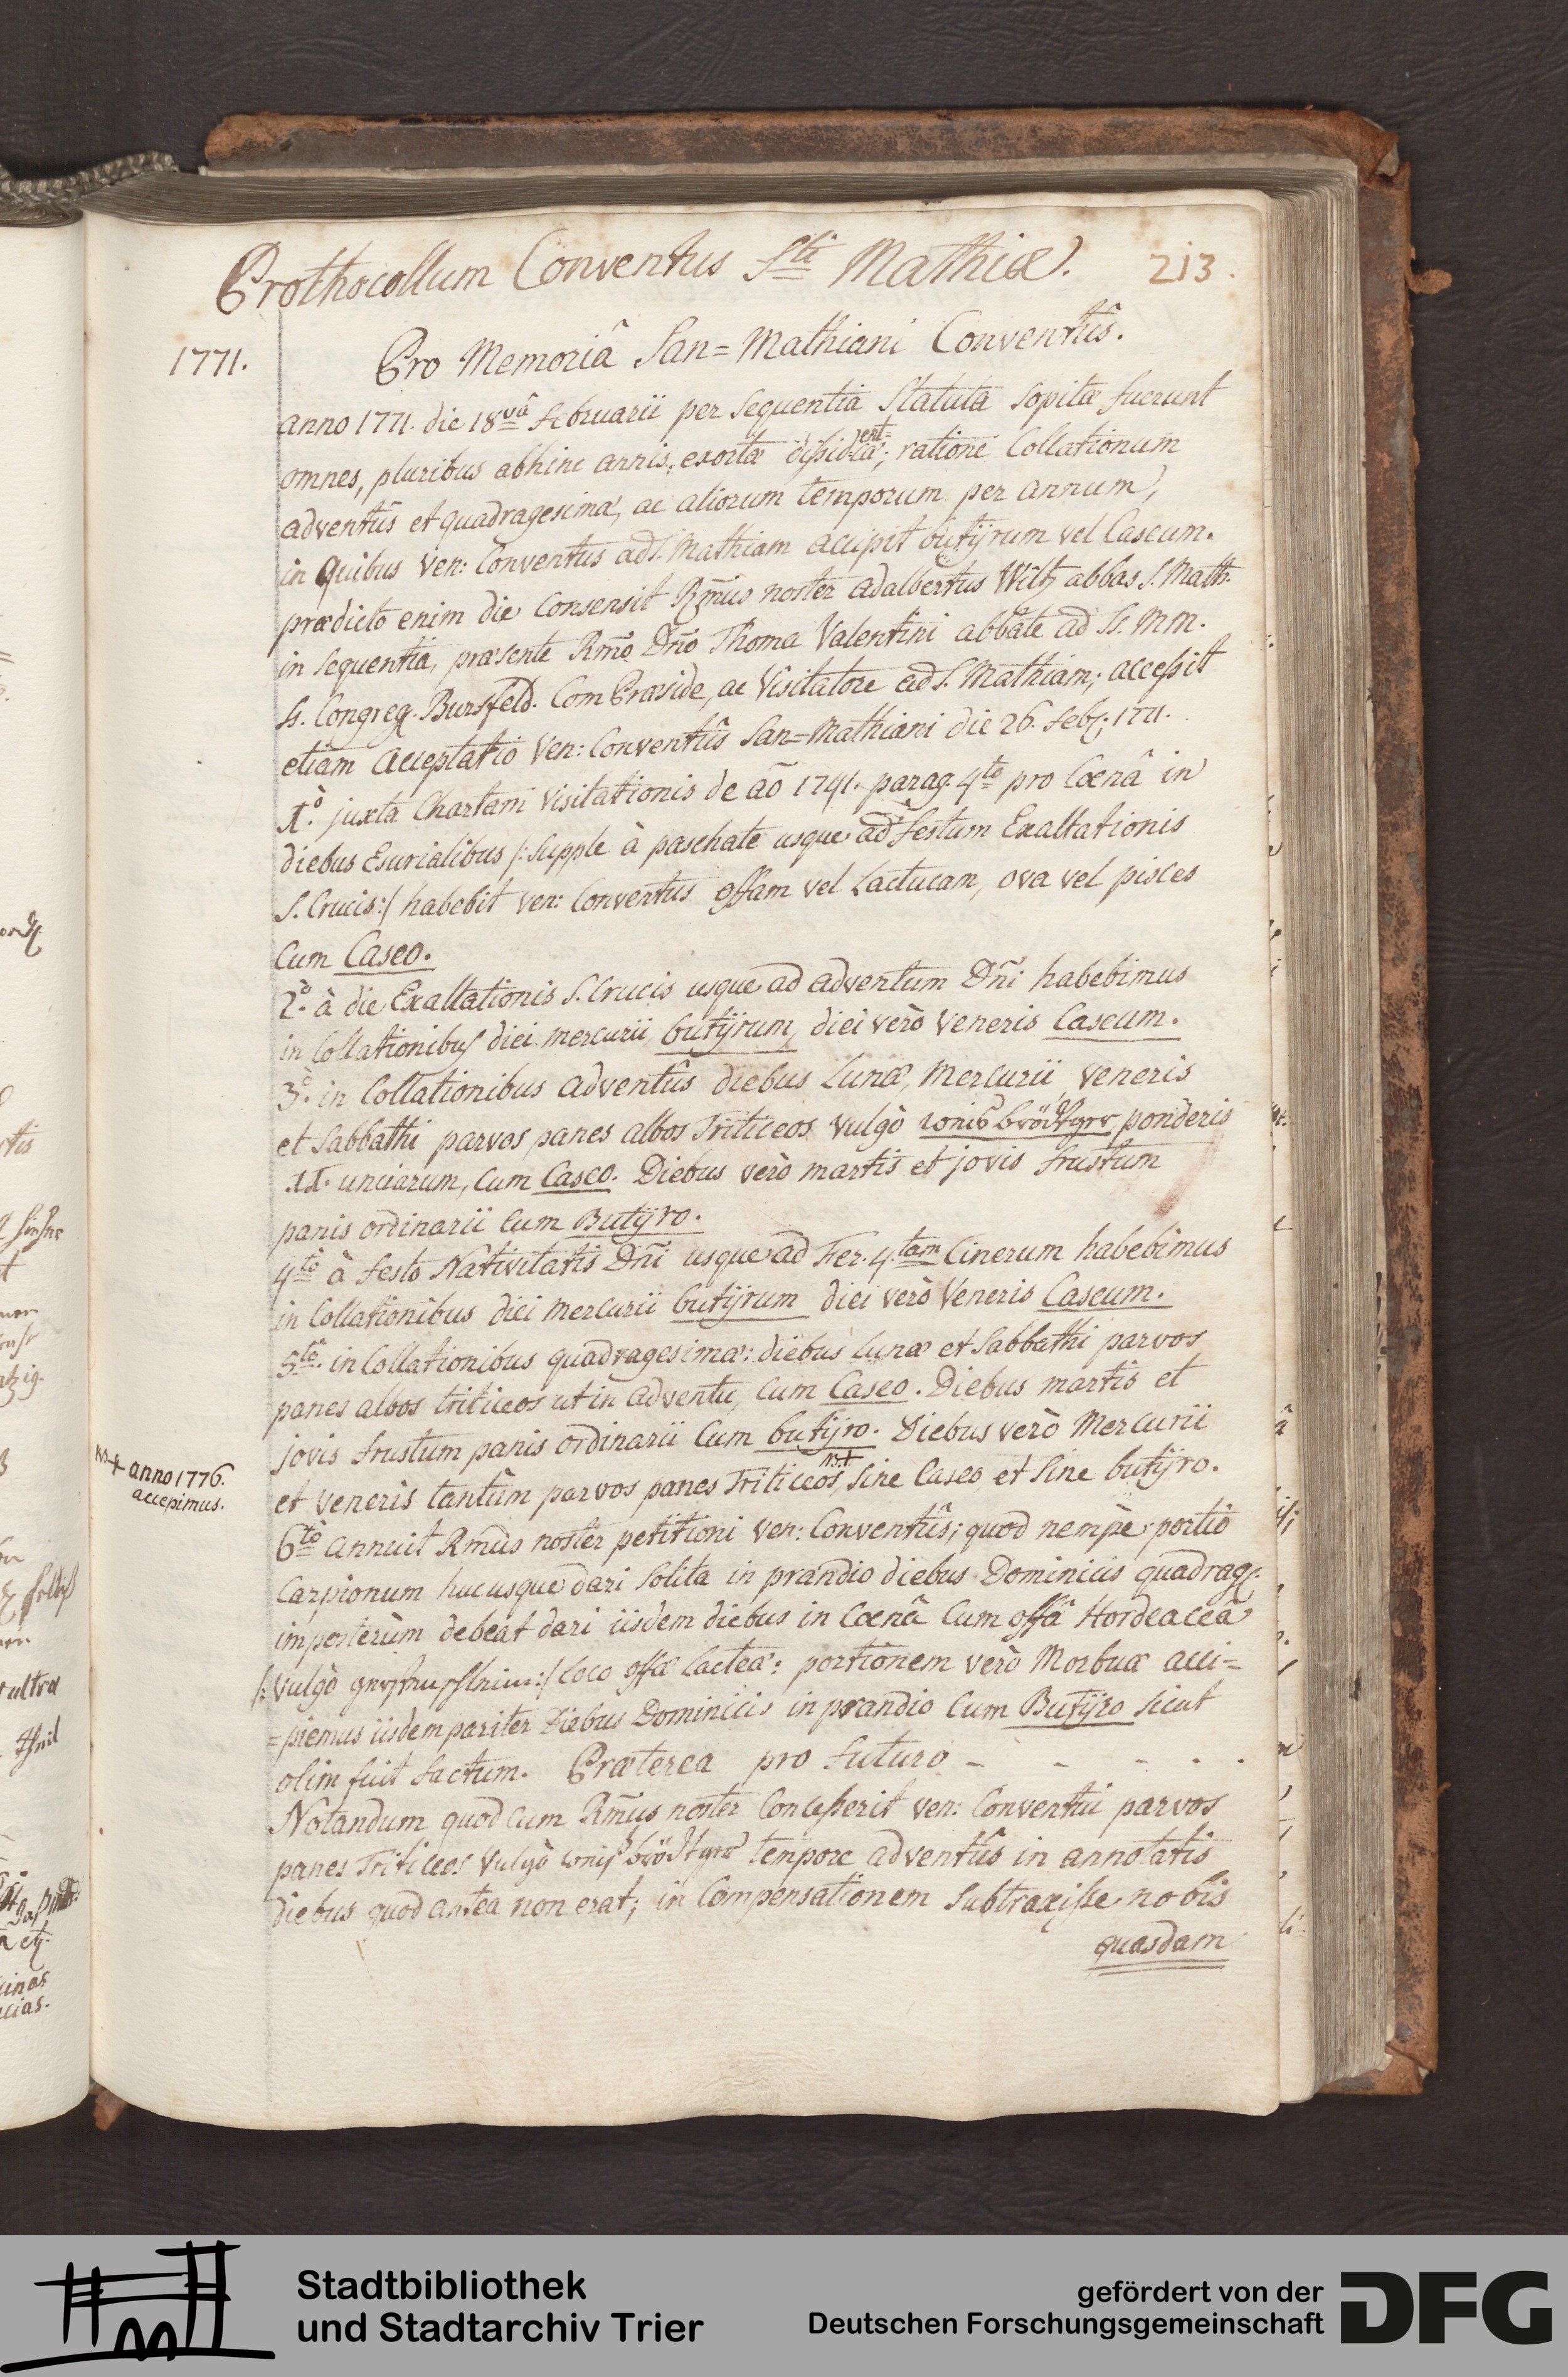 Prothocollum Conventus Sti Mathiæ. 213.
1771. Pro Memoriâ San=Mathiani Conventûs.
anno 1771. die 18vâ februarii per sequentia Statuta sopitæ fuerunt
omnes, pluribus abhinc annis, exortæ dissidentiæ; ratione Collationum
adventûs et quadragesimæ, ac aliorum temporum per annum,
in Quibus Ven: Conventus ad S. Mathiam accipit butÿrum vel Caseum.
prædicto enim die Consensit Rm̄us noster adalbertus Wiltz abbas S. Math.
in sequentia, præsente Rm̄o Dn̄o Thoma Valentini abbate ad SS. MM.
SS. Congreg. Bursfeld. Com Præside, ac Visitatore ad S. Mathiam; accessit
etiam acceptatio Ven: Conventûs San=Mathiani die 26. feb; 1771.
1º. juxta Chartam Visitationis de aō 1741. parag. 4to pro Cœnâ in
diebus Esurialibus /: supple à paschate usque ad festum Exaltationis
S. Crucis :/ habebit ven: Conventus offam vel Lactucam, ova vel pisces
Cum Caseo.
2º. à die Exaltationis S. Crucis usque ad adventum Dn̄i habebimus
in Collationibus diei mercurii butÿrum, diei verò Veneris Caseum.
3º. in Collationibus adventûs diebus Lunæ, Mercurii, veneris
et Sabbathi parvos panes albos Triticeos vulgò ponderis
XI. unciarum, Cum Caseo. Diebus verò martis et jovis frustum
panis ordinarii Cum Butÿro.
4tò à festo Nativitatis Dn̄i usque ad Fer. 4.tam Cinerum habebimus
in Collationibus diei Mercurii butÿrum diei verò Veneris Caseum.
5tò. in Collationibus quadragesimæ: diebus Lunæ et Sabbathi parvos
panes albos triticeos ut in adventu, Cum Caseo. Diebus martis et
jovis frustum panis ordinarii Cum butÿro. Diebus verò Mercurii
et Veneris tantùm parvos panes Triticeos, sine Caseo et sine butÿro.
anno 1776.
accepimus.
6tò annuit Rm̄us noster petitioni Ven: Conventûs; quod nempè portio
Carpionum hucusque dari solita in prandio diebus Dominicis quadrag.
imposterùm debeat dari iisdem diebus in Cœnâ Cum offâ Hordeaceâ
/: vulgò :/ loco offæ Lacteæ: portionem verò Morbuæ acci=
=piemus iisdem pariter Diebus Dominicis in prandio Cum Butÿro sicut
olim fuit factum. Præterea pro futuro - - - - - .
Notandum quod cum Rm̄us noster Concesserit ven: Conventui parvos
panes Triticeos vulgò tempore adventûs in annotatis
diebus quod antea non erat; in Compensationem subtraxisse nobis
quasdam
Stadtbibliothek
und Stadtarchiv Trier
gefördert von der
Deutschen Forschungsgemeinschaft
DFG